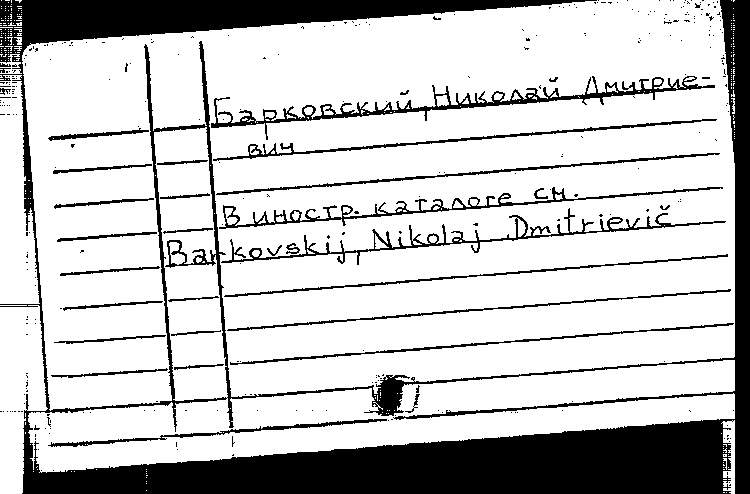 Барковский, Николай Дмитрие-
вич
В иностр. каталоге см.
Barkovskij, Nikolaj Dmitrievič